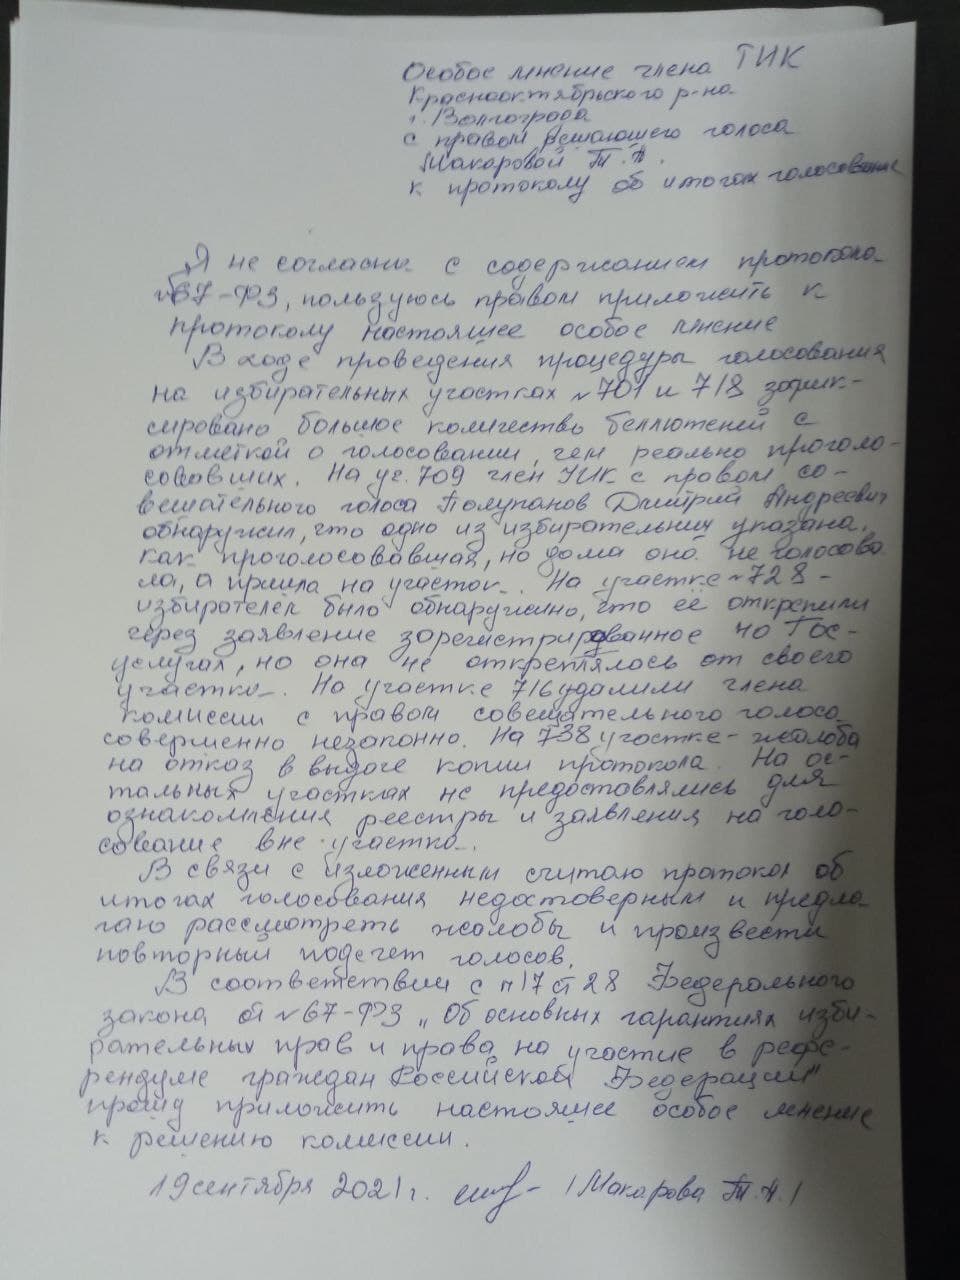 Особое мнение члена ТИК
Краснооктябрьского р-на
г. Волгограда
с правом решающего голоса
Макаровой Т.А.
к протоколу об итогах голосования
Я не согласна с содержанием протокола
№67-ФЗ, пользуюсь правом приложить к
протоколу настоящее особое мнение
В ходе проведения процедуры голосования
на избирательных участках №701 и 718 зафик-
сировано большое количество беллютеней с
отметкой о голосовании, чем реально проголо-
совавших. На уч. 709 член УИК с правом со-
вещательного голоса Полупанов Дмитрий Андреевич
обнаружил, что одно из избирательниц указана,
как проголосовавшая, но дома она не голосова
ла, а пришла на участок. На участке №728 -
избирателем было обнаружено, что её открепили
через заявление зарегистрированное но Гос-
услугах, но она не открепялось от своего
участка. На участке 716 удалили члена
комиссии с правом совещательного голоса
совершенно незаконно. На 738 участке - жалоба
на отказ в выдаче копии протокола. На ос-
тальных участках не предоставлялись для
ознакомления реестры и заявления на голо-
сование вне участка.
В связи с изложенным считаю протокол об
итогах голосования недостоверным и предла-
гаю рассмотреть жалобы и произвести
повторный подсчет голосов.
В соответствии с п 17 ст 28 Федерального
закона от №67-ФЗ „Об основных гарантиях изби-
рательных прав и права на участие в рефе-
рендуме граждан Российской Федерации"
прошу приложить настоящее особое мнение
к решению комиссии.
19 сентября 2021 г. /Макарова Т.А./